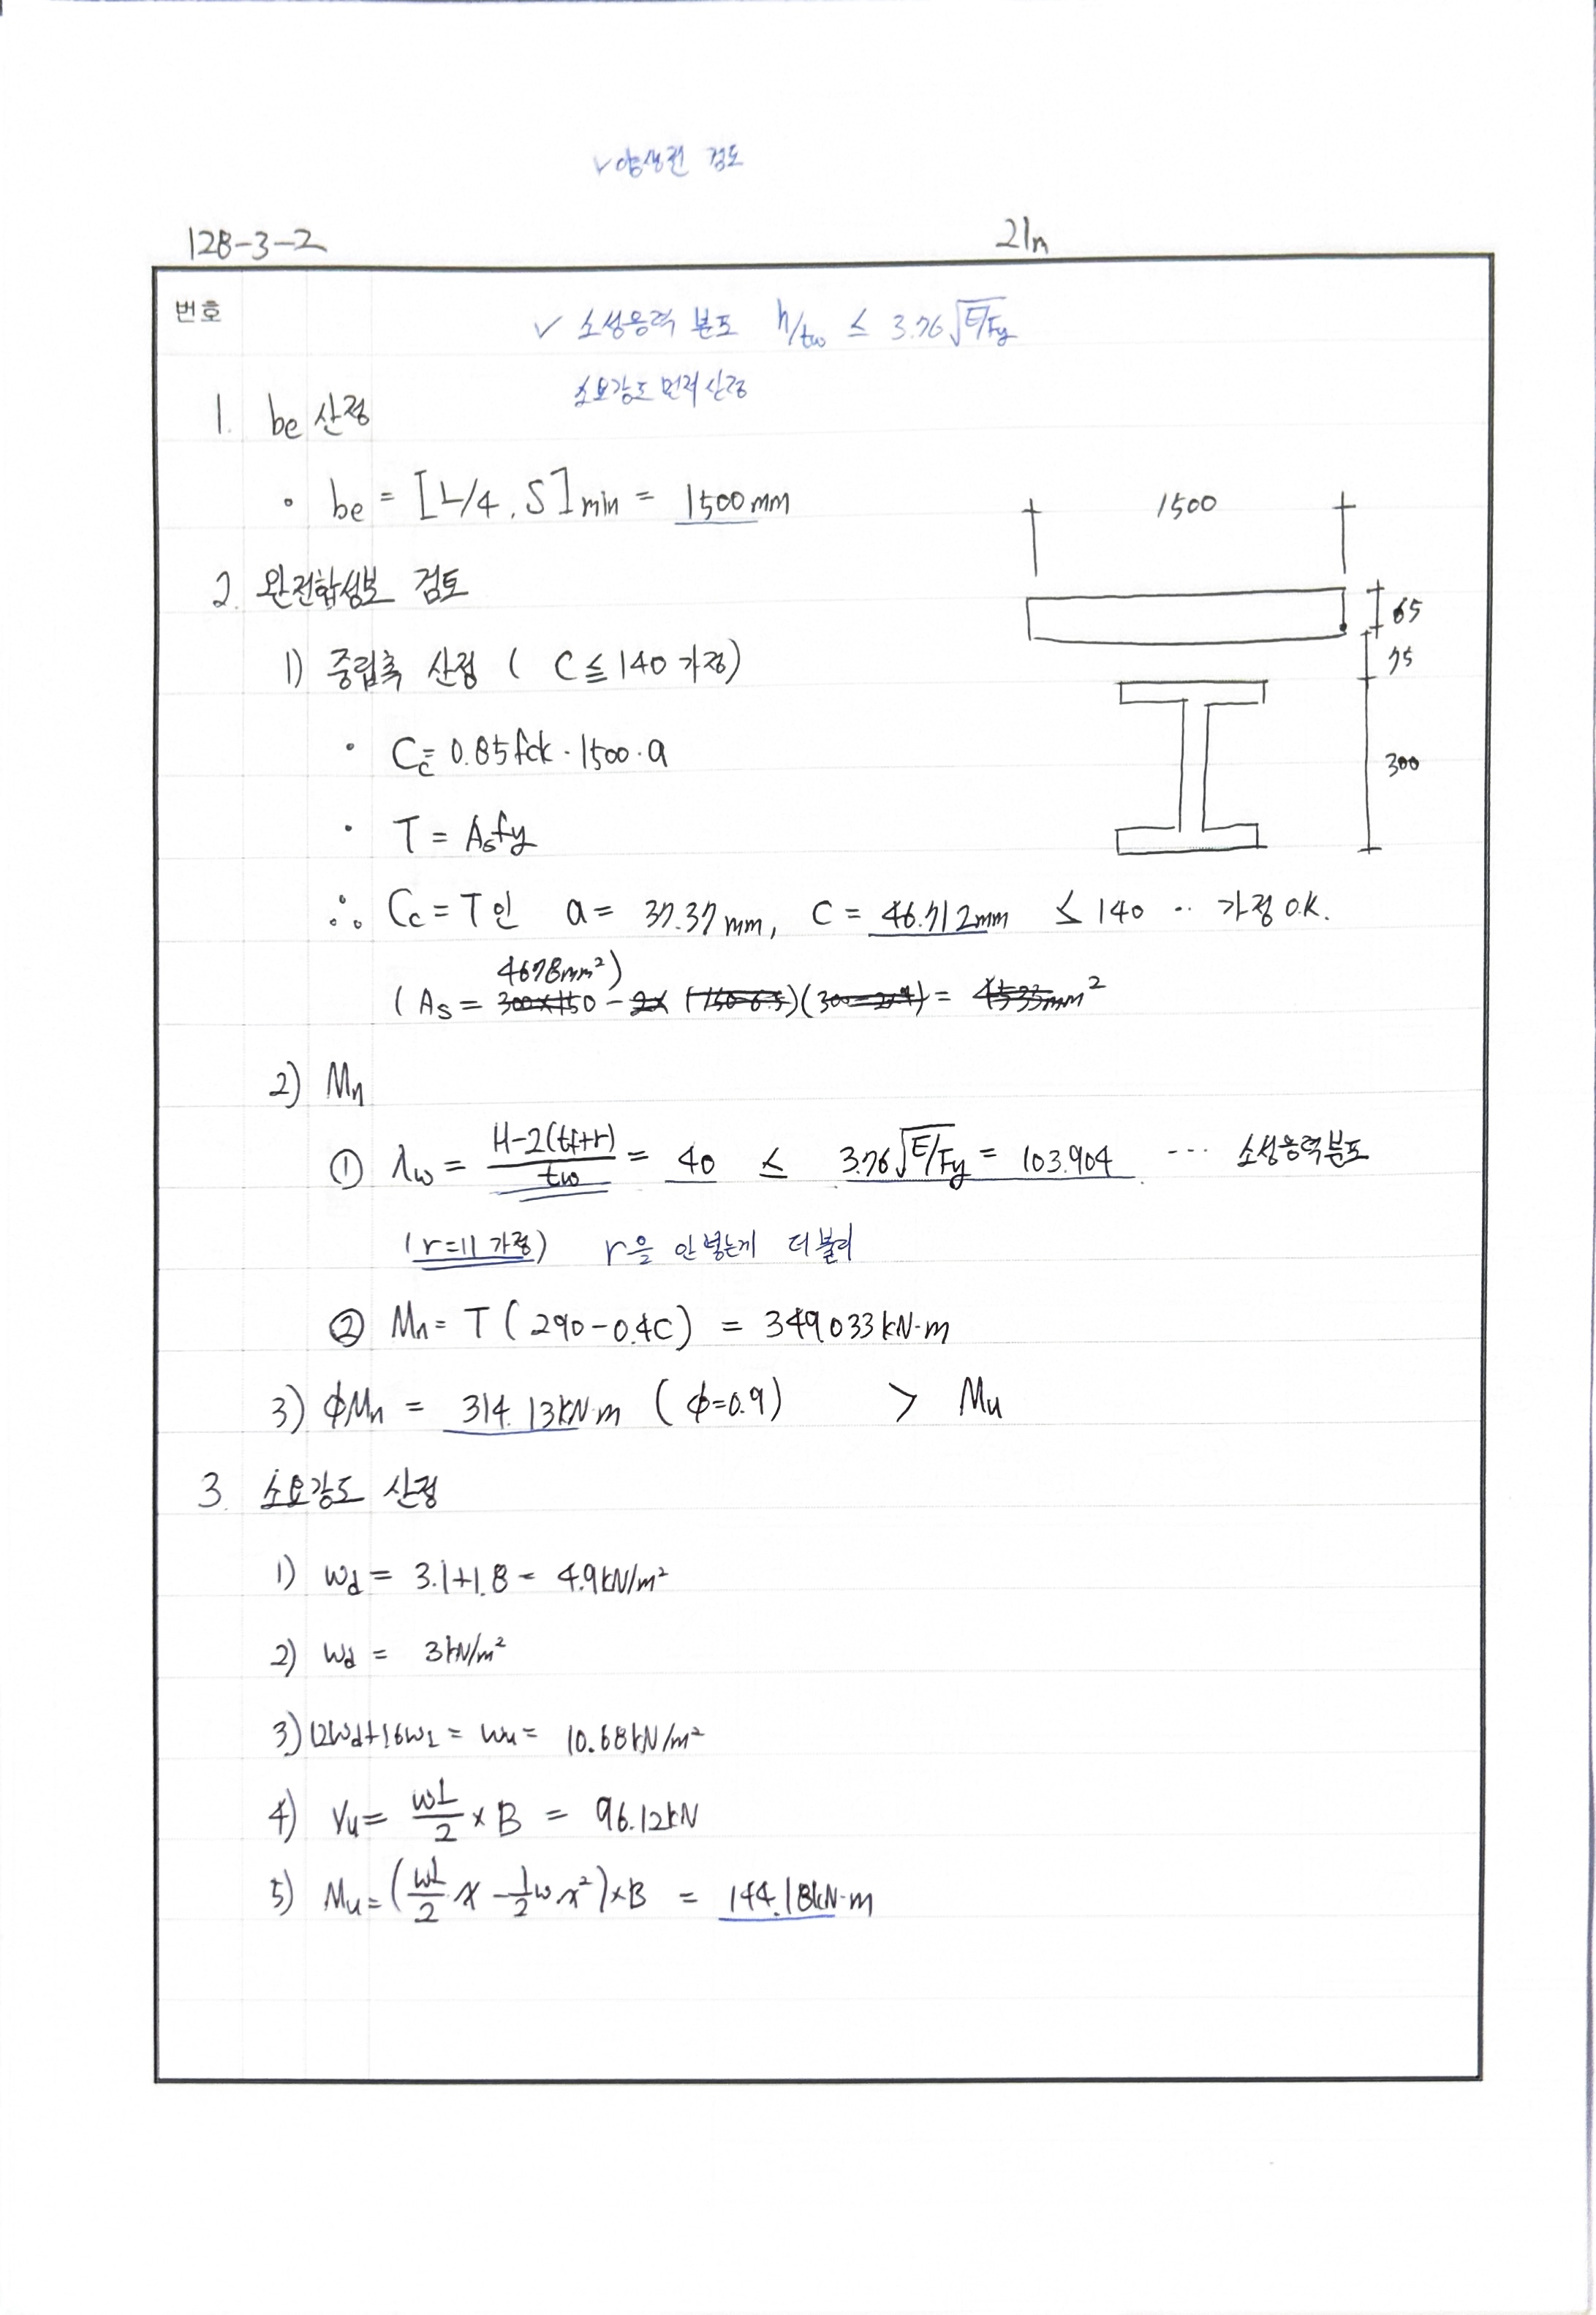 ✓ 양생전 검토
128-3-2
21m
번호
✓ 소성응력 분포 h/tw ≤ 3.76√E/Fy
소요강도 먼저 산정
1. be 산정
• be = [L/4, S]min = 1500mm
1500
65
75
300
2. 완전합성보 검토
1) 중립축 산정 ( C ≤ 140 가정)
• Cc = 0.85fck · 1500 · a
• T = Asfy
∴ Cc = T 인 a = 37.37mm, C = 46.712mm ≤ 140 ·· 가정 O.K.
4678mm²)
(As = 300×150 - 2× (150-6.5)(300-2×9) = 4533mm²
2) Mn
① λw = H-2(tf+r)/tw = 40 ≤ 3.76√E/Fy = 103.904 ··· 소성응력분포
(r=11 가정) r을 안 넣는게 더 불리
② Mn = T ( 290-0.4C) = 349.033kN·m
3) φMn = 314.13kN·m (φ=0.9) > Mu
3. 소요강도 산정
1) wd = 3.1+1.8 = 4.9kN/m²
2) wd = 3kN/m²
3) 1.2wd+1.6wL = wu = 10.68kN/m²
4) Vu = wL/2 × B = 96.12kN
5) Mu = (wL/2 x - 1/2 w x²)×B = 144.18kN·m